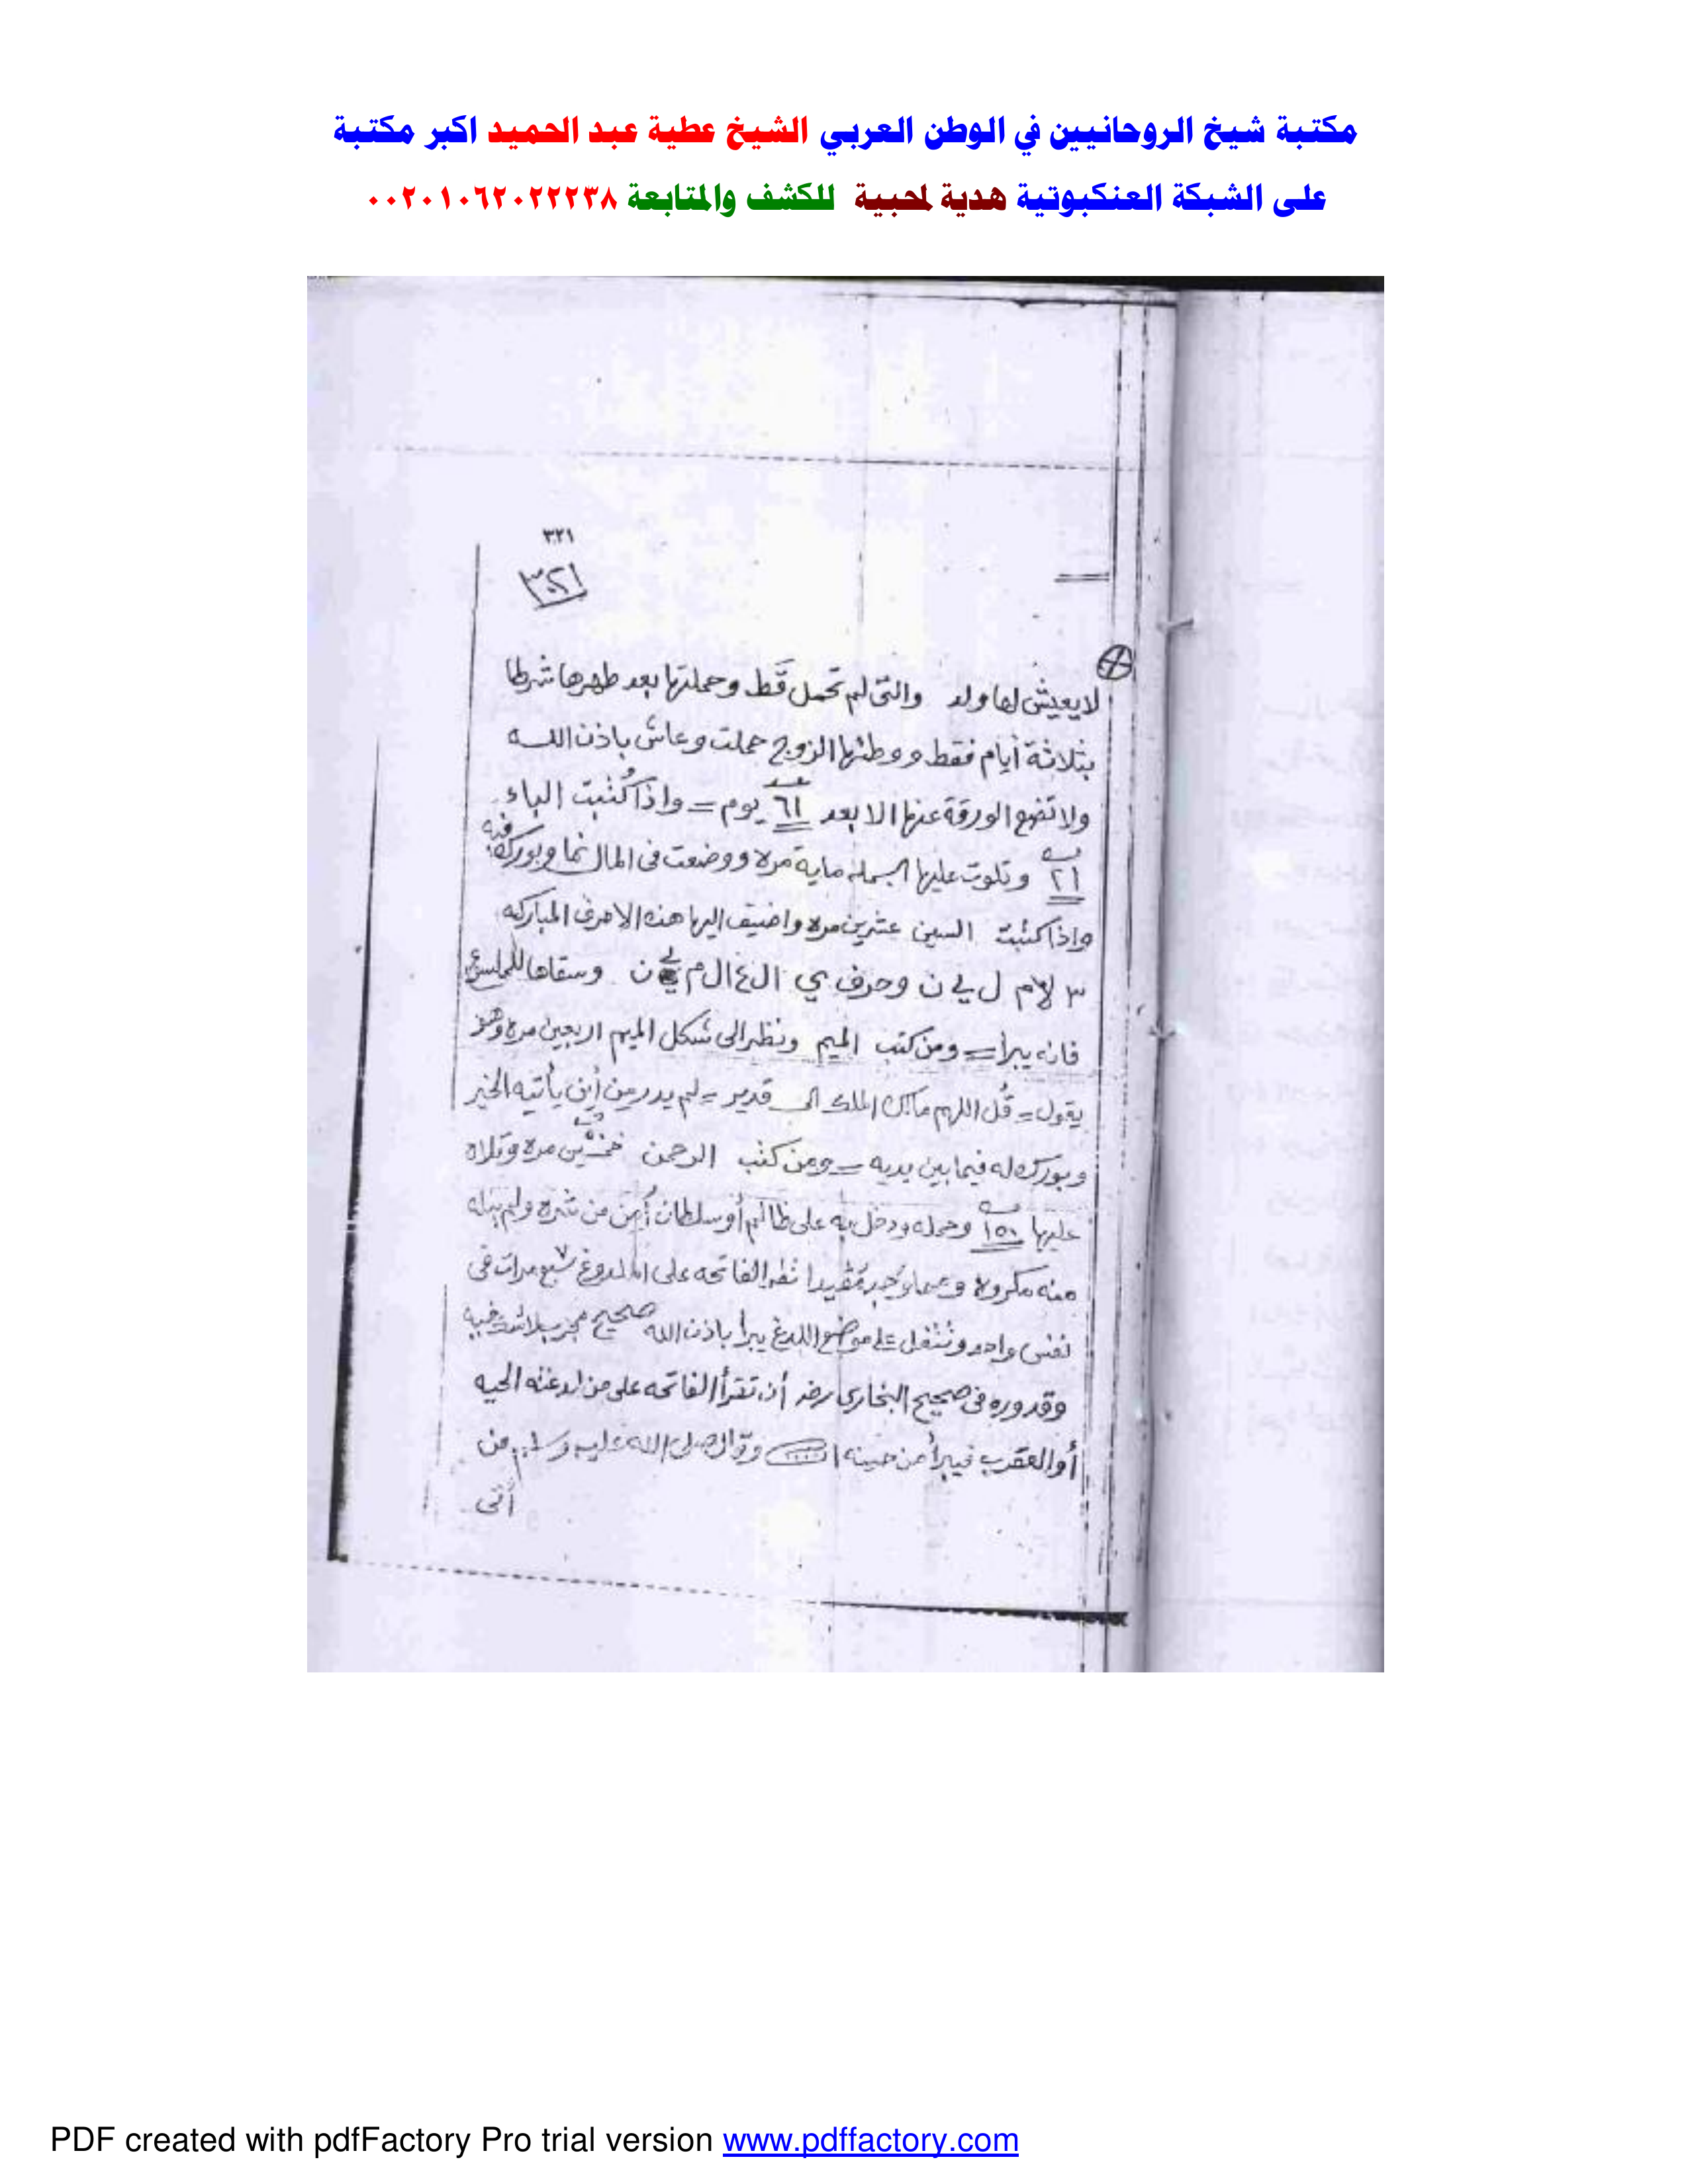 مكتبة شيخ الروحانيين في الوطن العربي الشيخ عطية عبد الحميد اكبر مكتبة
على الشبكة العنكبوتية هدية لمحبية للكشف والمتابعة ٠٠٢٠١٠٦٢٠٢٢٢٣٨
٣٢١
٣٢١
لايعيش لها ولد والتى لم تحمل قط وحملتها بعد طهرها شرطا
بثلاثة أيام فقط ووطئها الزوج حملت وعاش باذن الله
ولا تضع الورقة عنها الا بعد ٦١ يوم = واذا كُتبت الباء
٢١ وتلوت عليها البسملة ماية مره ووضعت فى المال نما وبورك فيه
واذا كتبت السين عشرين مره واضيف اليها هذه الاحرف المباركه
ل ي ن وحرف ي ال ع ال م ي ن وسقاها
فانه يبرا = ومن كتب الميم ونظر الى شكل الميم اربعين مره وهو
يقول = قُل اللهم مالك الملك الى قدير = لم يدر من أين يأتيه الخير
وبورك له فيما بين يديه = ومن كتب الرحمن خمسين مره وتلاه
عليها ١٥٠ وحمله ودخل به على ظالم أو سلطان أمِن من شره ولم ينله
منه مكروه الفاتحه على الملدوغ سبع مرات فى
نفس واحد وتتفل على موضع اللدغ يبرأ باذن الله صحيح مجرب بلا شك فيه
وقد ورد فى صحيح البخارى أن تقرأ الفاتحه على من لدغته الحيه
أو العقرب فيبرأ من حينه وقال صلى الله عليه وسلم من
أتى
PDF created with pdfFactory Pro trial version www.pdffactory.com